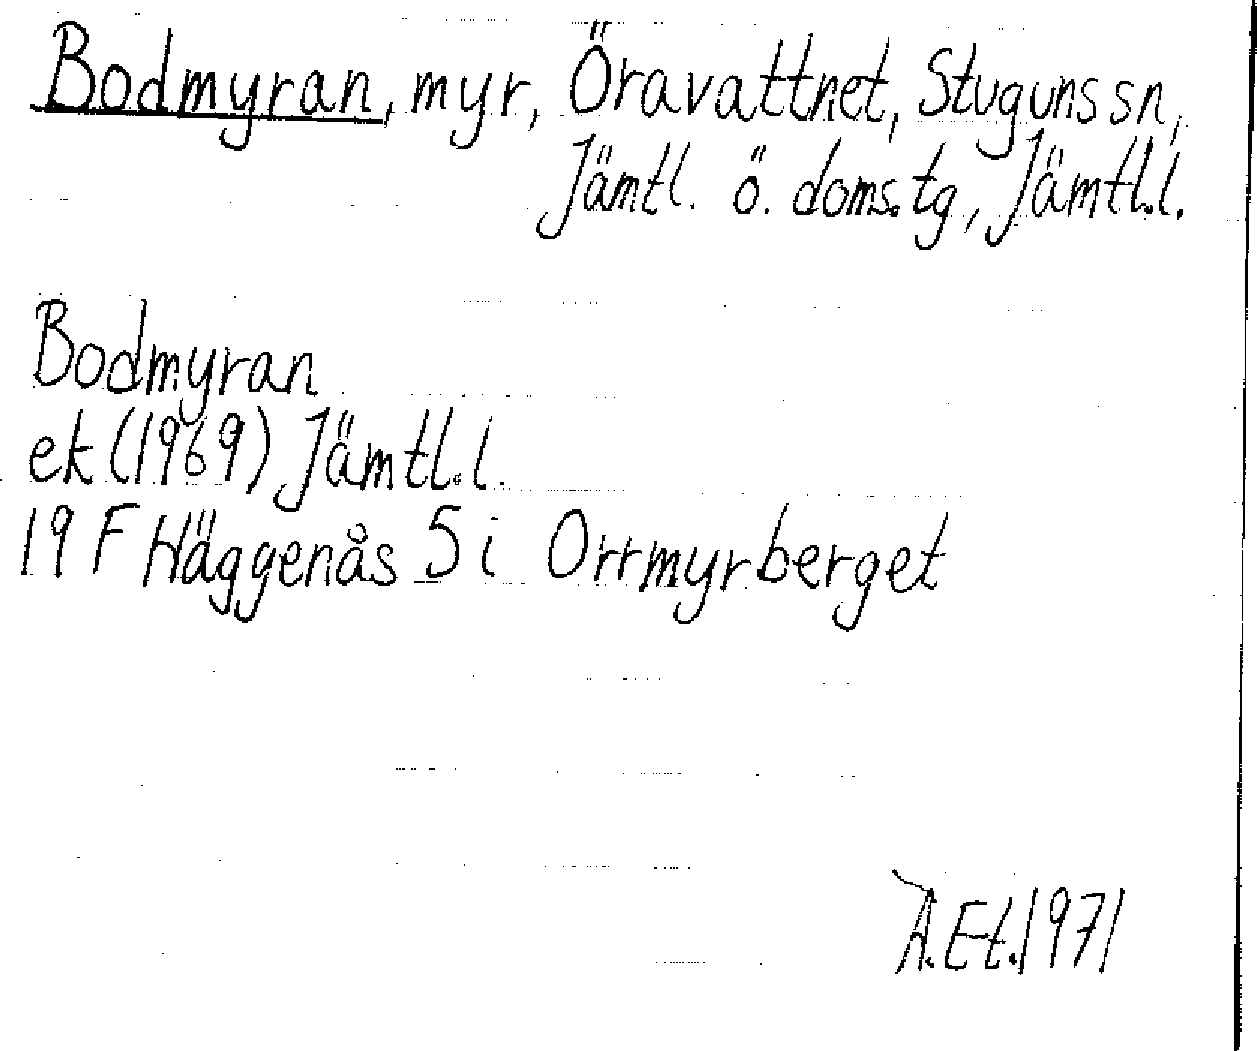 Bodmyran, myr, Öravattnet, Stuguns sn,
Jämtl. ö. doms.tg, Jämtl.l.
Bodmyran
ek (1969) Jämtl.l.
19 F Häggenås 5 i Orrmyrberget
A.Et.1971